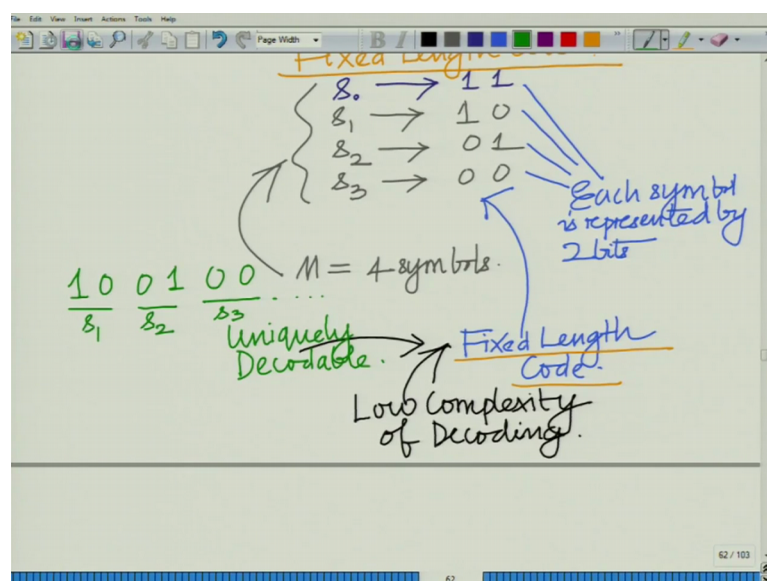 File Edit View Insert Actions Tools Help
Page Width
B I
Fixed Length Code.
s0 → 1 1
s1 → 1 0
s2 → 0 1
s3 → 0 0
Each symbol
is represented by
2 bits
M = 4 symbols.
10 01 00 ....
s1 s2 s3
Uniquely
Decodable.
Fixed Length
Code.
Low Complexity
of Decoding.
62 / 103
62